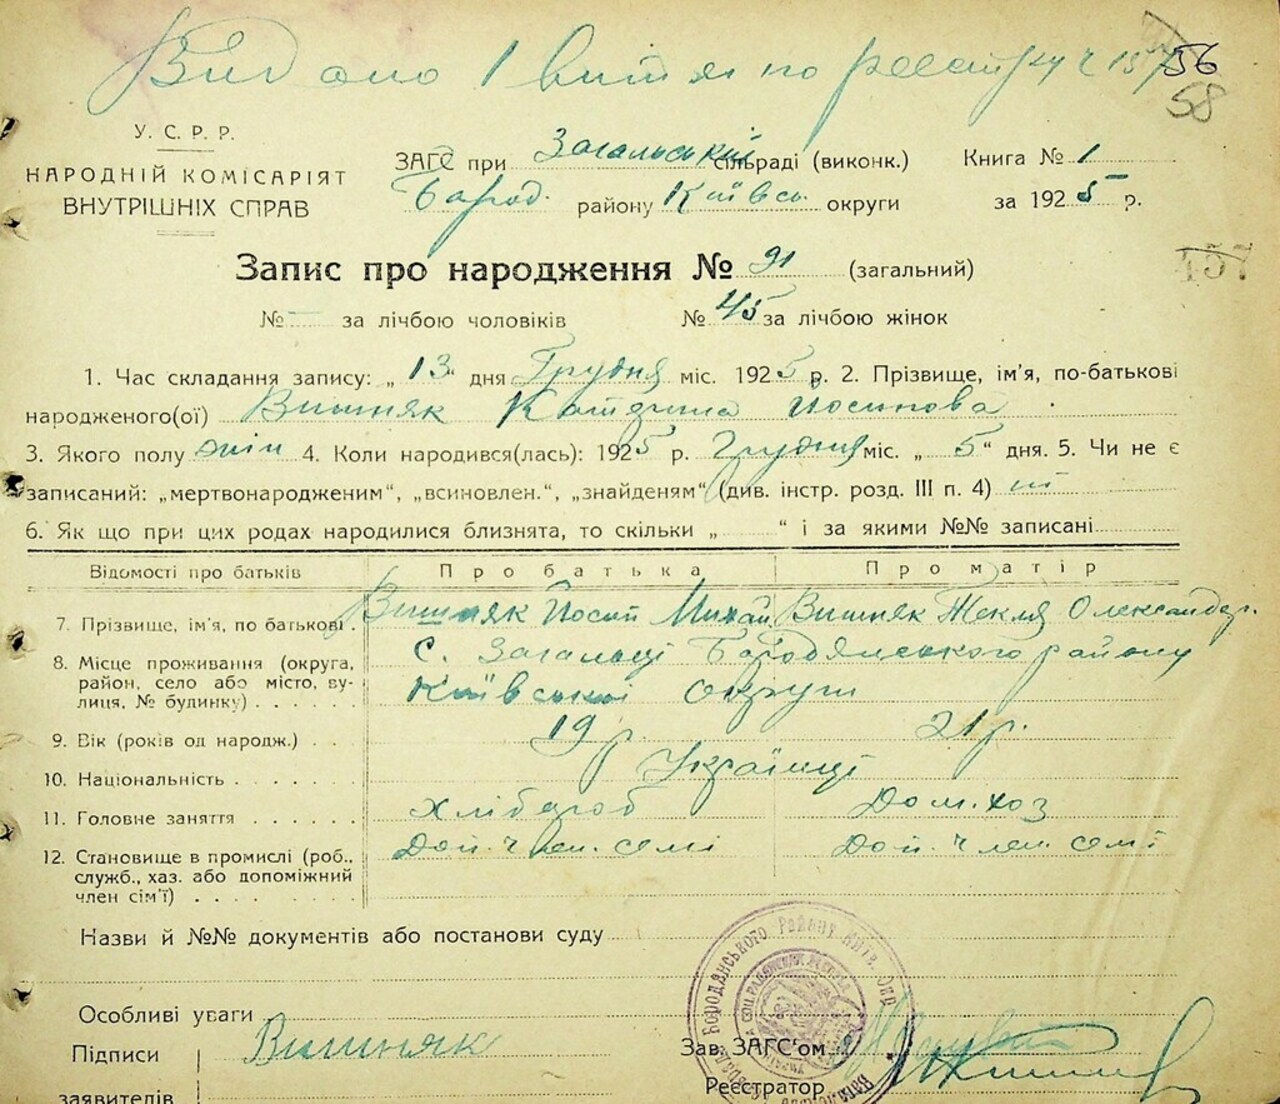 Видано 1 витяг по реєстру ч 15
56
58
У. С. Р. Р.
НАРОДНІЙ КОМІСАРІЯТ
ВНУТРІШНІХ СПРАВ
ЗАГС при Загальській сільраді (виконк.) Книга № 1
Бород. району Київсь. округи за 1925 р.
157
Запис про народження № 91 (загальний)
№ — за лічбою чоловіків № 45 за лічбою жінок
1. Час складання запису: „13" дня Грудня міс. 1925 р. 2. Прізвище, ім'я, по-батькові
народженого(ої) Вишняк Катерина Йосипова
3. Якого полу жін 4. Коли народився(лась): 1925 р. Грудня міс. „ 5" дня. 5. Чи не є
записаний: „мертвонародженим", „всиновлен.", „знайденям" (див. інстр. розд. III п. 4) ні
6. Як що при цих родах народилися близнята, то скільки „ " і за якими №№ записані
Відомості про батьків Про батька Про матір
7. Прізвище, ім'я, по батькові. Вишняк Йосип Михай Вишняк Текля Олександр.
8. Місце проживання (округа, район, село або місто, вулиця, № будинку) с. Загальці Бородянського району
Київської округи
9. Вік (років од народж.) 19 р. 21 р.
10. Національність Українці
11. Головне заняття Хлібороб Дом. хоз
12. Становище в промислі (роб., Доп. член. семі Доп. член. семі
служб., хаз. або допоміжний
член сім'ї)
Назви й №№ документів або постанови суду
Особливі уваги
Підписи Вишняк
заявителів
Зав. ЗАГС'ом
Реєстратор
Бородянського Району Київ. Окр